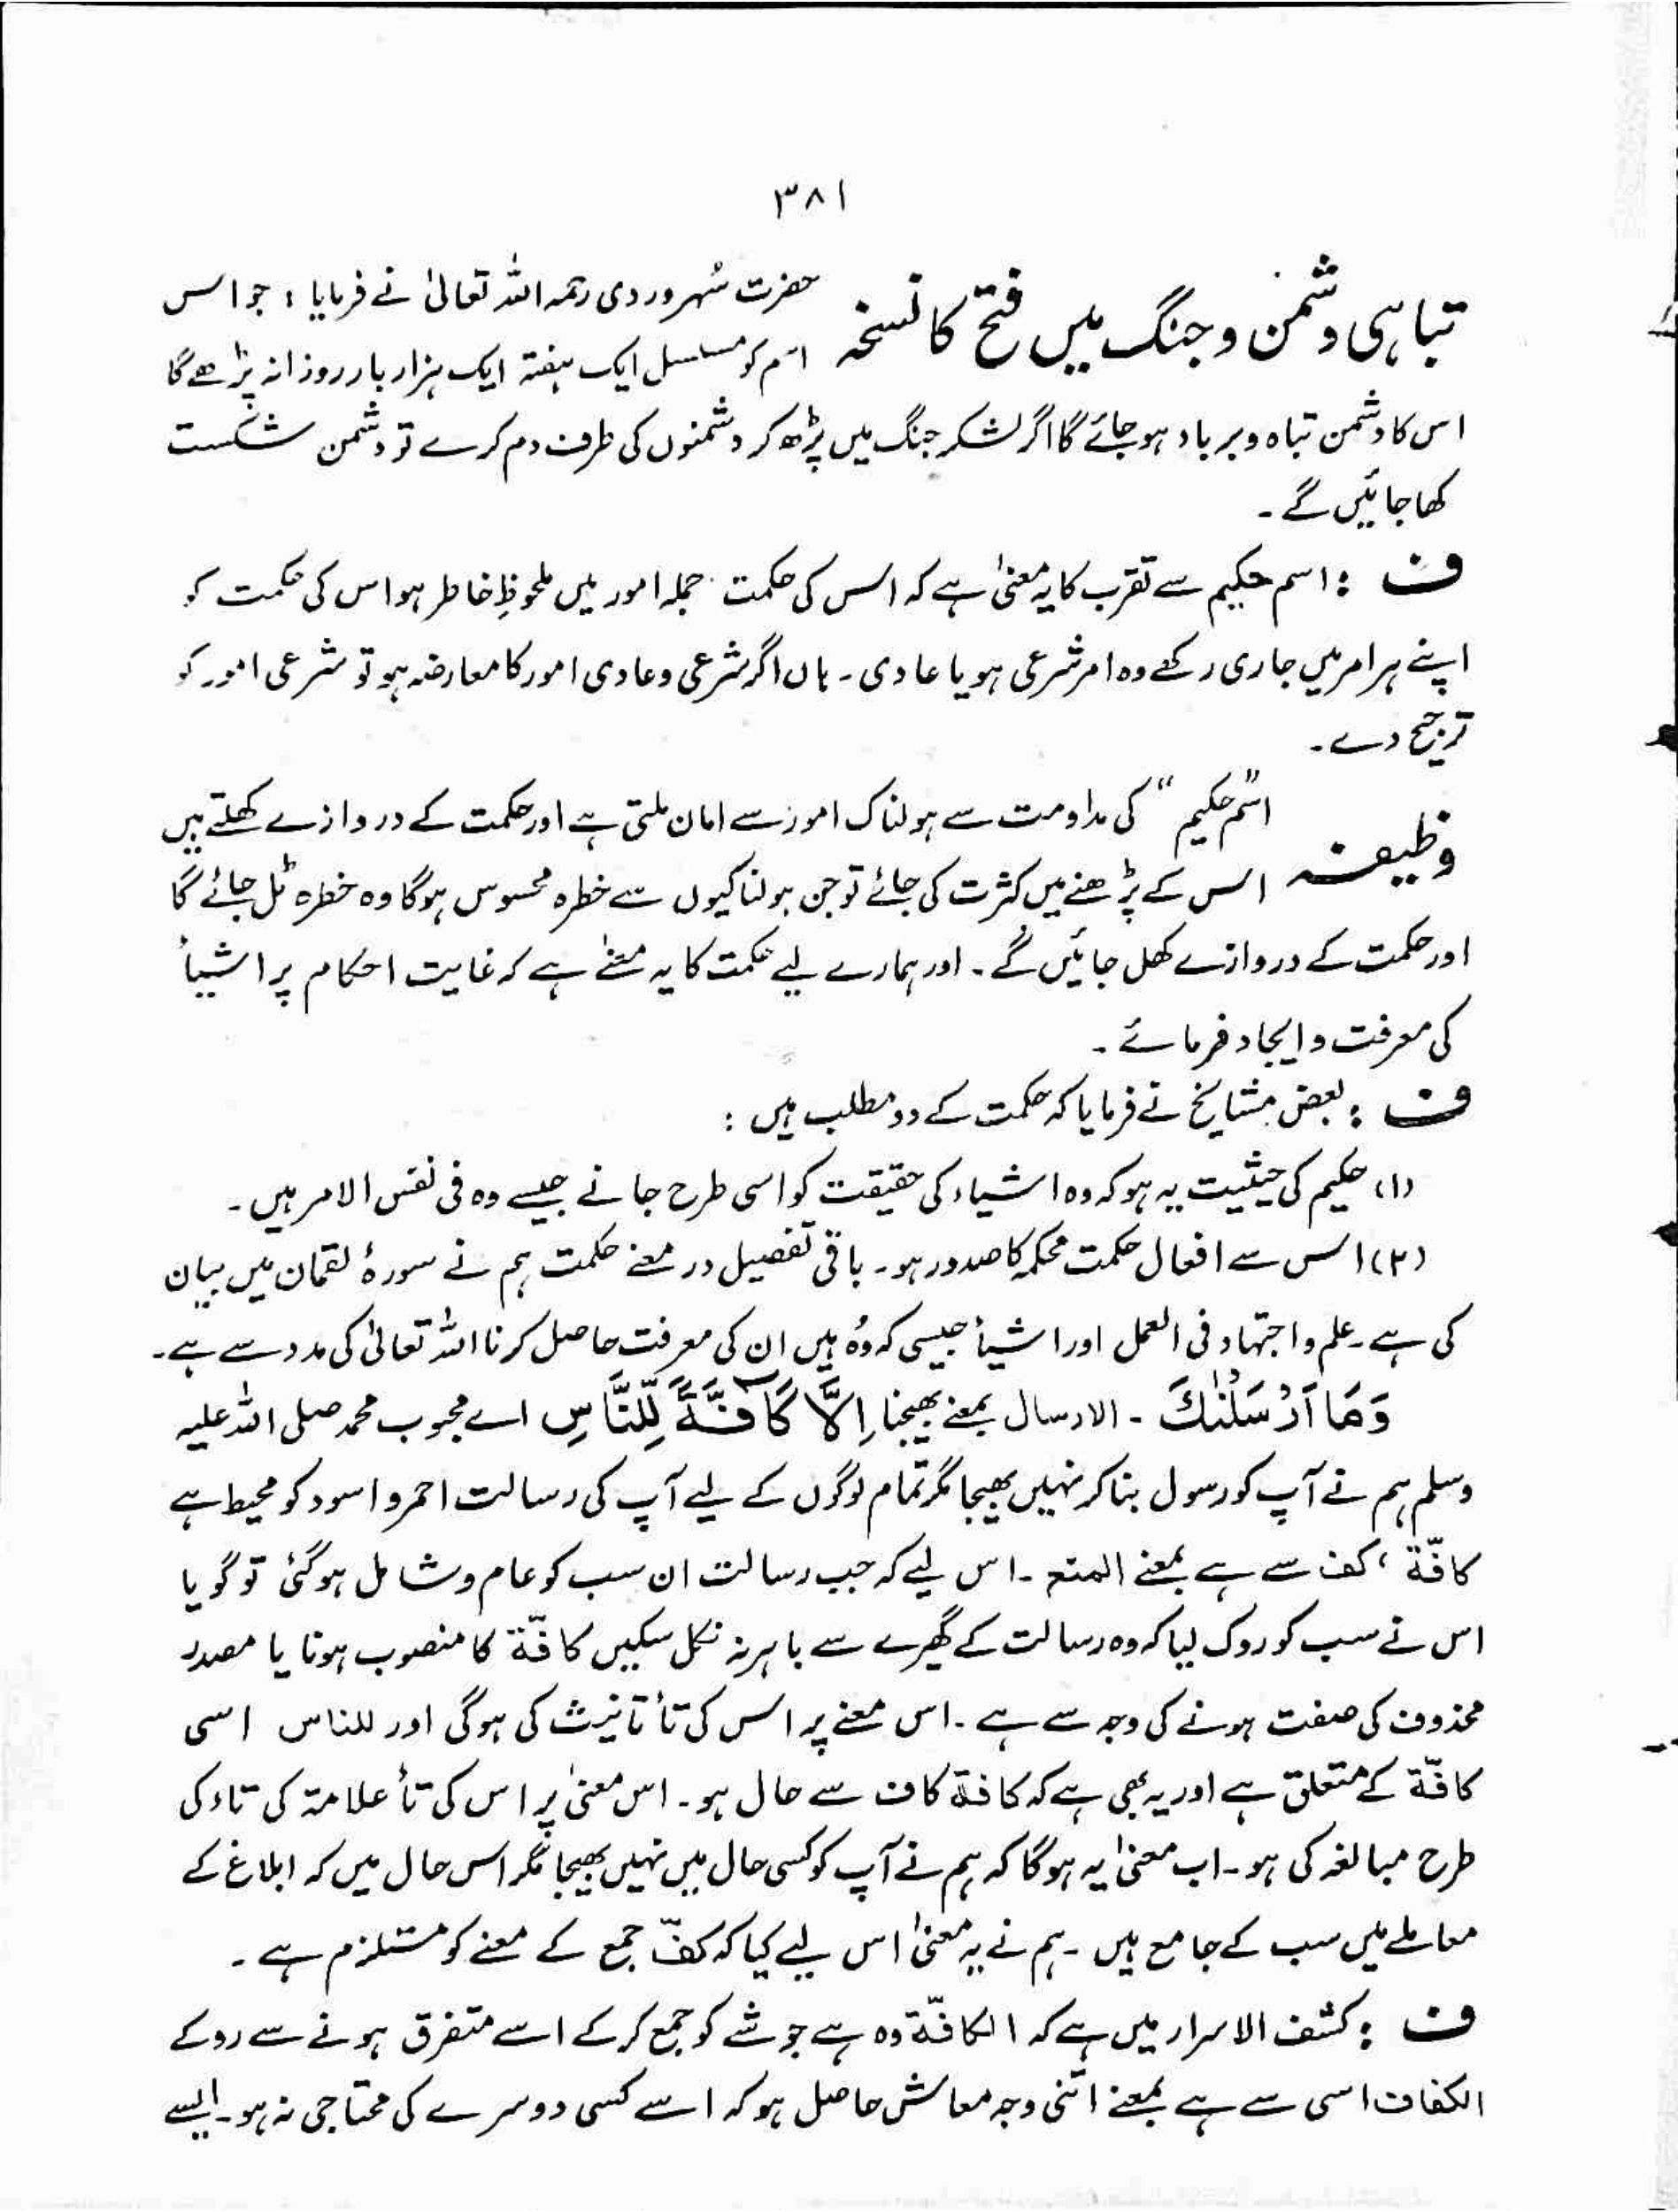 ۳۸۱
تباہی دشمن و جنگ میں فتح کا نسخہ
حضرت سُہروردی رحمہ اللہ تعالیٰ نے فرمایا : جو اس
اسم کو مسلسل ایک ہفتہ ایک ہزار بار روزانہ پڑھے گا
اس کا دشمن تباہ و برباد ہو جائے گا اگر لشکر جنگ میں پڑھ کر دشمنوں کی طرف دم کرے تو دشمن شکست
کھا جائیں گے ۔
ف : اسم حکیم سے تقرب کا یہ معنیٰ ہے کہ اس کی حکمت جملہ امور میں ملحوظِ خاطر ہو اس کی حکمت کو
اپنے ہر امر میں جاری رکھے وہ امر شرعی ہو یا عادی ۔ ہاں اگر شرعی و عادی امور کا معارضہ ہو تو شرعی امور کو
ترجیح دے ۔
وظیفہ
"اسم حکیم" کی مداومت سے ہولناک امور سے امان ملتی ہے اور حکمت کے دروازے کھلتے ہیں
اس کے پڑھنے میں کثرت کی جائے تو جن ہولناکیوں سے خطرہ محسوس ہوگا وہ خطرہ ٹل جائے گا
اور حکمت کے دروازے کھل جائیں گے ۔ اور ہمارے لیے حکمت کا یہ معنے ہے کہ غایت احکام پر اشیأ
کی معرفت و ایجاد فرمائے ۔
ف : بعض مشایخ نے فرمایا کہ حکمت کے دو مطلب ہیں :
(۱) حکیم کی حیثیت یہ ہو کہ وہ اشیاء کی حقیقت کو اسی طرح جانے جیسے وہ فی نفس الامر ہیں ۔
(۲) اس سے افعال حکمت محکمہ کا صدور ہو ۔ باقی تفصیل در معنے حکمت ہم نے سورۂ لقمان میں بیان
کی ہے ۔ علم و اجتہاد فی العمل اور اشیأ جیسی کہ وُہ ہیں ان کی معرفت حاصل کرنا اللہ تعالیٰ کی مدد سے ہے ۔
وَمَا اَرْسَلْنٰكَ ۔ الارسال بمعنے بھیجنا اِلَّا كَآفَّةً لِّلنَّاسِ اے محبوب محمد صلی اللہ علیہ
وسلم ہم نے آپ کو رسول بنا کر نہیں بھیجا مگر تمام لوگوں کے لیے آپ کی رسالت احمر و اسود کو محیط ہے
کافّۃ ، کف سے ہے بمعنے المنع ۔ اس لیے کہ جب رسالت ان سب کو عام و شامل ہو گئی تو گویا
اس نے سب کو روک لیا کہ وہ رسالت کے گھیرے سے باہر نہ نکل سکیں کافّۃ کا منصوب ہونا یا مصدر
محذوف کی صفت ہونے کی وجہ سے ہے ۔ اس معنے پر اس کی تأ تانیث کی ہوگی اور للناس اسی
کافّۃ کے متعلق ہے اور یہ بھی ہے کہ کافۃ کاف سے حال ہو ۔ اس معنیٰ پر اس کی تأ علامۃ کی تاء کی
طرح مبالغہ کی ہو ۔ اب معنیٰ یہ ہوگا کہ ہم نے آپ کو کسی حال میں نہیں بھیجا مگر اس حال میں کہ ابلاغ کے
معاملے میں سب کے جامع ہیں ۔ ہم نے یہ معنیٰ اس لیے کیا کہ کفّ جمع کے معنے کو مستلزم ہے ۔
ف : کشف الاسرار میں ہے کہ الکافّۃ وہ ہے جو شے کو جمع کرکے اسے متفرق ہونے سے روکے
الکفاف اسی سے ہے بمعنے اتنی وجہ معاش حاصل ہو کہ اسے کسی دوسرے کی محتاجی نہ ہو ۔ ایسے